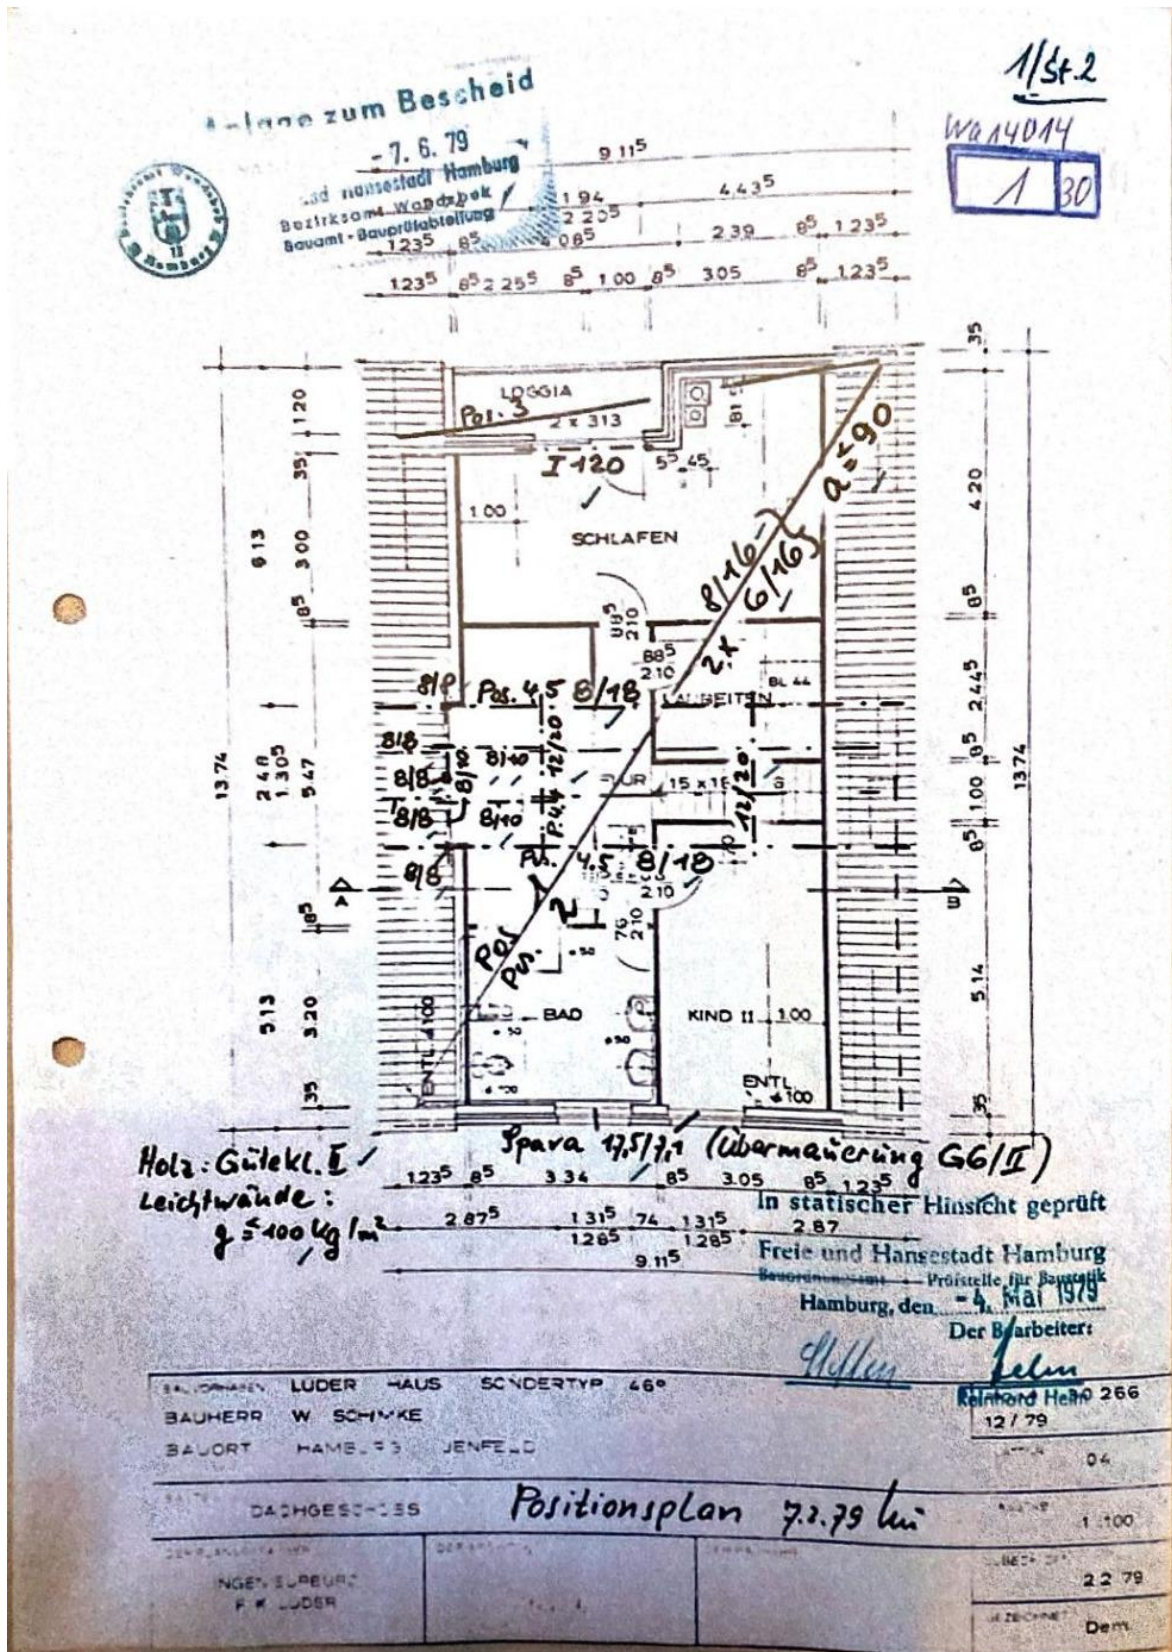 1/St.2
Wa14014
1 30
Anlage zum Bescheid
- 7. 6. 79
Hansestadt Hamburg
Bezirksamt Wandsbek
Bauamt - Bauprüfabteilung
9 11⁵
1 94 4.43⁵
2 20⁵
1 23⁵ 8⁵ 2 39 8⁵ 1 23⁵
1.23⁵ 8⁵ 2 25⁵ 8⁵ 1 00 8⁵ 3.05 8⁵ 1.23⁵
35
LOGGIA
Pos. 3 2 x 313
I 120
a = ≤ 90
1 20
35
6 13
3 00
8⁵
4 20
1 00
SCHLAFEN
8/16
6/16
2 x
88⁵
210
88⁵
210
8⁵
8/8 Pos. 4.5 8/18 ARBEITEN
2 44⁵
8/8
8/10 8/10 12/20
8/8
P. 4.4
FLUR
15 x
12/20
8/8 8/10
13 74
2 48
1.30⁵
5.47
8⁵ 1 00 8⁵
13 74
8/8 Pos. 4.5 8/18
210
A B
8⁵
76
210
Pos. 1
Pos. 2
5.13
3.20
35
5.14
35
BAD KIND II 1.00
ENTL. ⌀ 100
ENTL.
⌀ 100
Spara 17,5/7,1 (Übermauerung G6/II)
Holz: Gütekl. II
Leichtwände:
g ≤ 100 kg/m²
1.23⁵ 8⁵ 3 34 8⁵ 3.05 8⁵ 1.23⁵
2.87⁵ 1.31⁵ 74 1.31⁵ 2.87
1.26⁵ 1.26⁵
9.11⁵
In statischer Hinsicht geprüft
Freie und Hansestadt Hamburg
Bauordnungsamt - Prüfstelle für Baustatik
Hamburg, den - 4. Mai 1979
Der Bearbeiter:
Reinhard Helm
BAUVORHABEN LUDER HAUS SONDERTYP 46°
BAUHERR W SCHIMKE
BAUORT HAMBURG JENFELD
30 266
12/79
04
DACHGESCHOSS Positionsplan 7.2.79
1 : 100
INGENIEURBÜRO
F K LUDER
2 2 79
GEZEICHNET
Dem.